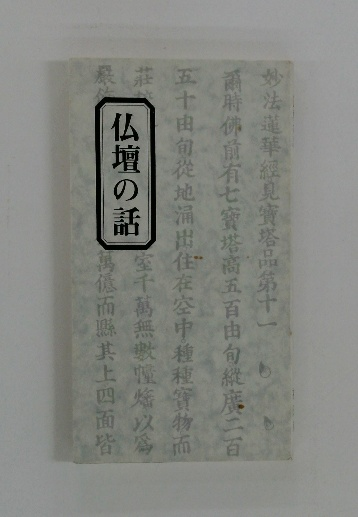 仏壇の話
妙法蓮華經見寶塔品第十一
爾時佛前有七寶塔高五百由旬縱廣二百
五十由旬從地涌出住在空中種種寶物而
莊 室千萬無數幢旛以爲
嚴 萬億而縣其上四面皆